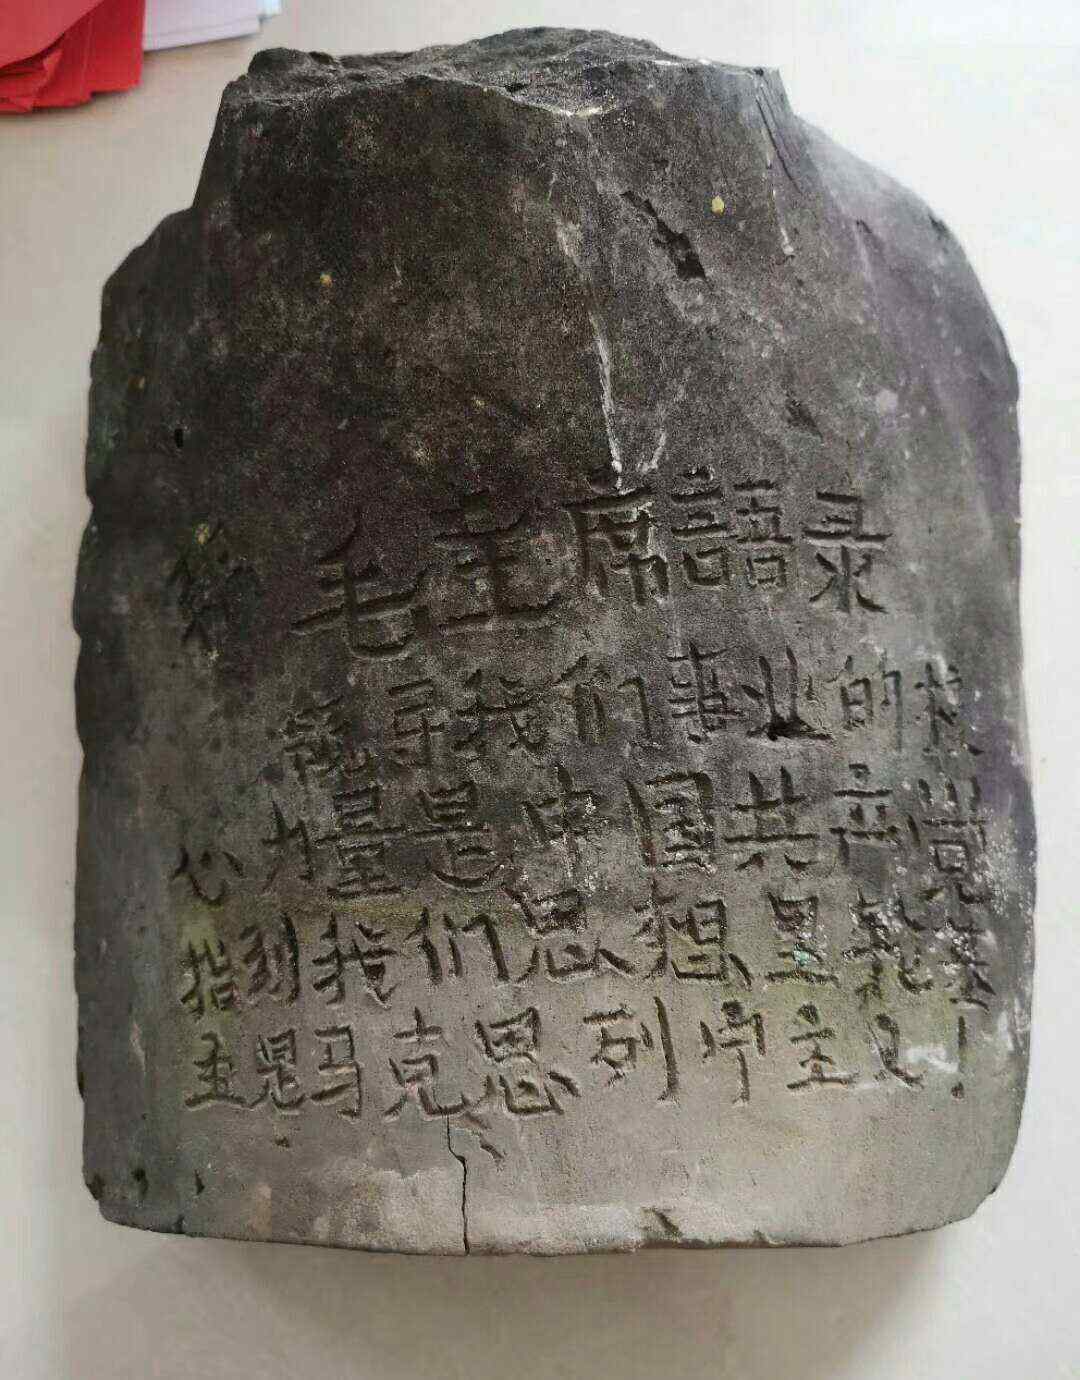 毛主席語录
領导我们事业的核
心力量是中国共产党
指到我们思想里基
是马克思列宁主义